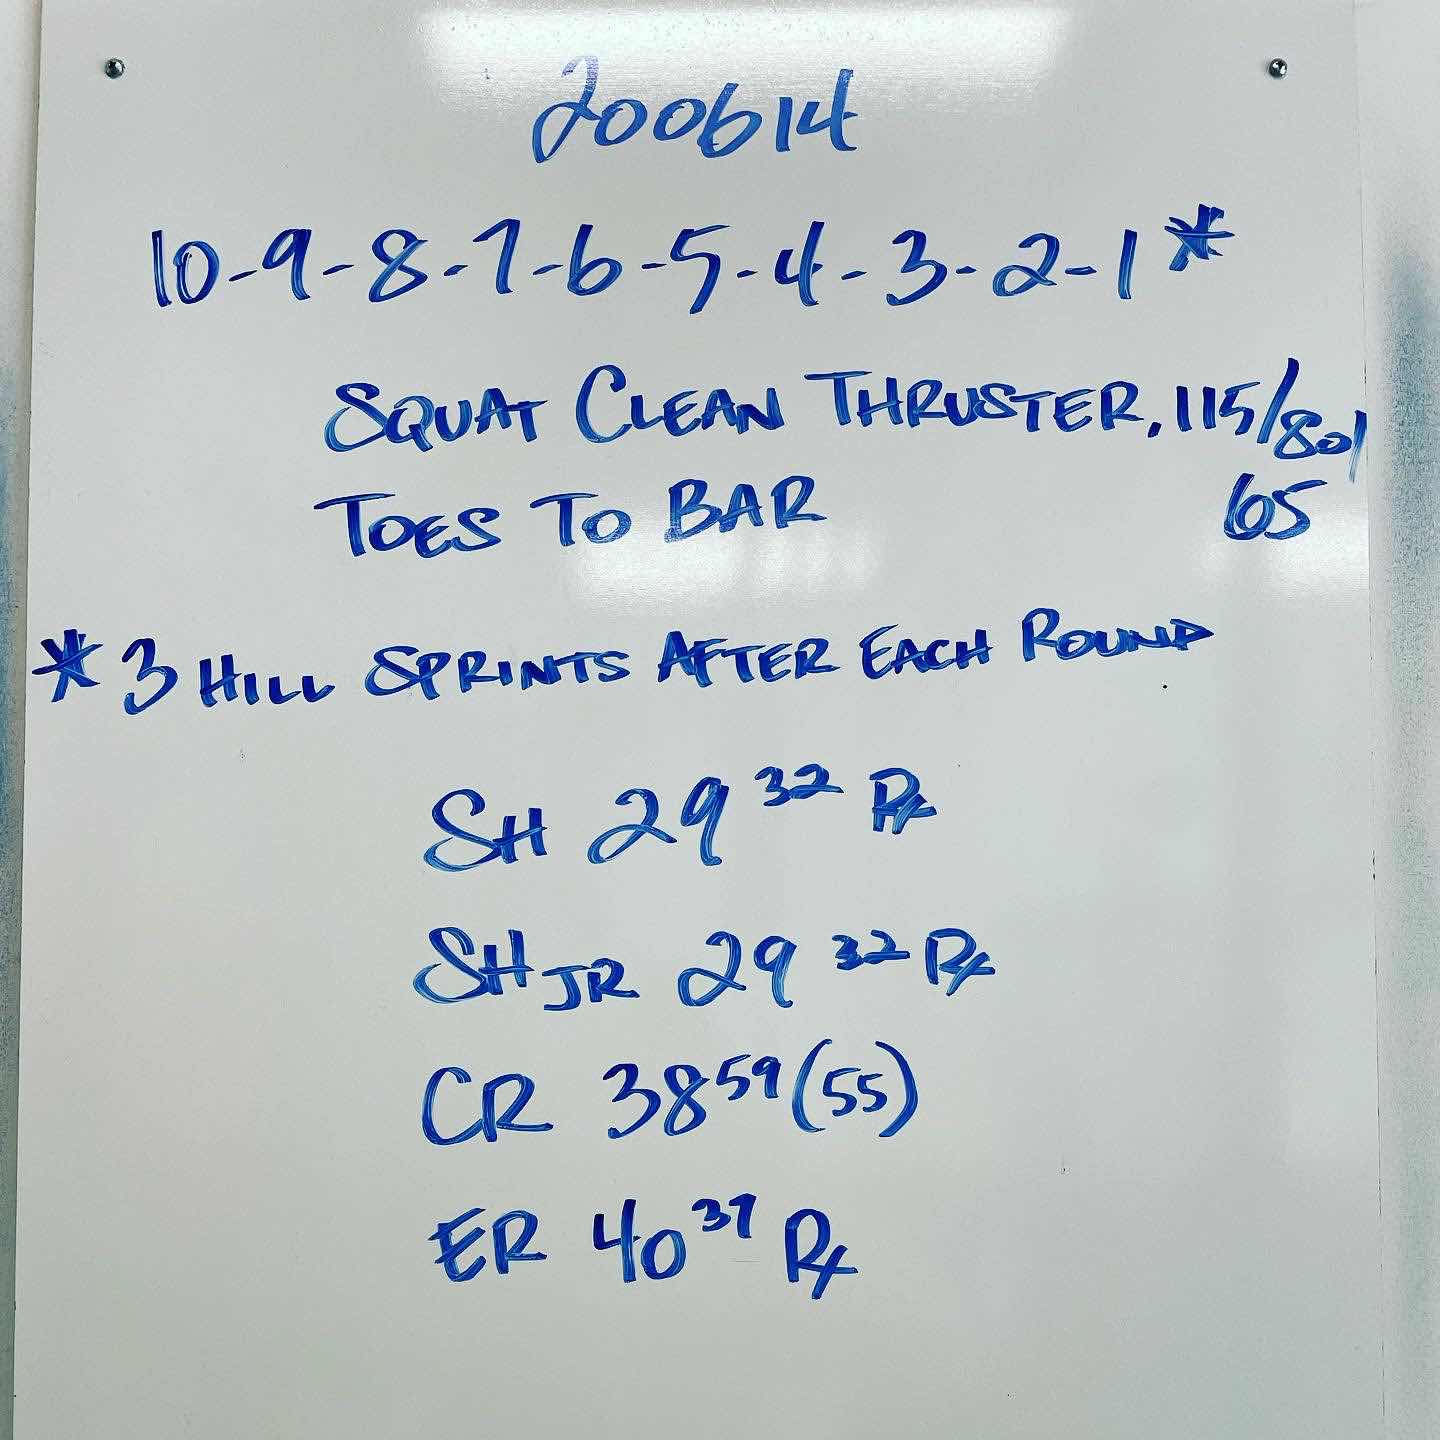 200614
10-9-8-7-6-5-4-3-2-1*
SQUAT CLEAN THRUSTER, 115/80/
65
TOES TO BAR
*3 HILL SPRINTS AFTER EACH ROUND
SH 29 32 Rx
SH JR 29 32 Rx
CR 38 59 (55)
ER 40 37 Rx